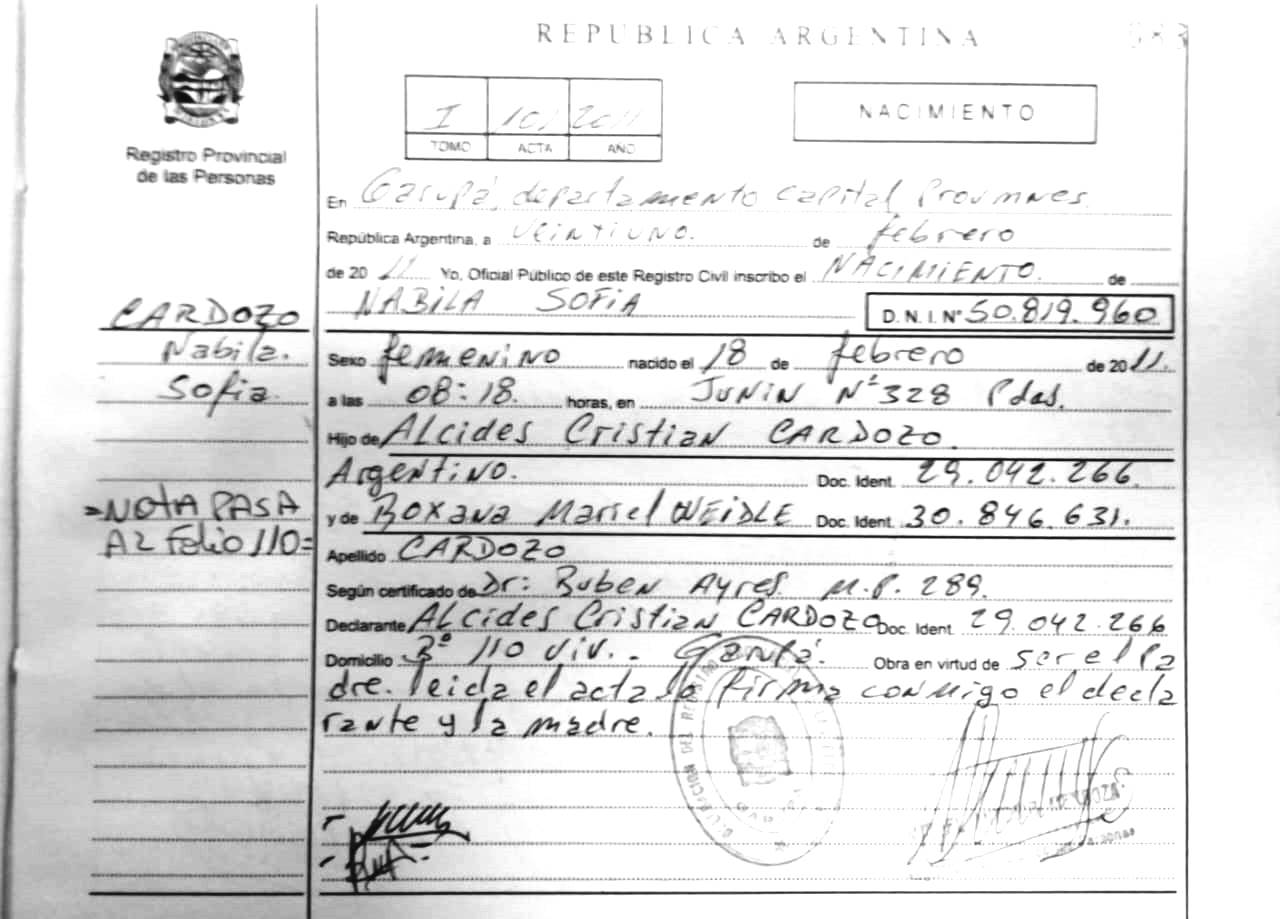 REPUBLICA ARGENTINA
Registro Provincial
de las Personas
I 10 2011
TOMO ACTA AÑO
NACIMIENTO
En Garupá, departamento capital Prov mnes.
República Argentina, a veintiuno. de febrero
de 2011 Yo, Oficial Público de este Registro Civil inscribo el NACIMIENTO. de
NABILA SOFIA D. N. I. Nº 50.819.960
CARDOZO
Nabila.
Sofia.
Sexo femenino nacido el 18 de febrero de 2011.
a las 08:18. horas, en JUNIN Nº 328 Pdas.
Hijo de Alcides Cristian CARDOZO.
Argentino. Doc. Ident. 29.042.266.
y de Roxana Marisel WEIDLE Doc. Ident. 30.846.631.
=NOTA PASA
AL Folio 110=
Apellido CARDOZO
Según certificado de Dr: Ruben Ayres. M.P. 289.
Declarante Alcides Cristian CARDOZO Doc. Ident. 29.042.266
Domicilio Bº 110 viv. - Garupá. Obra en virtud de ser el pa
dre. leida el acta la firma conmigo el decla
rante y la madre.